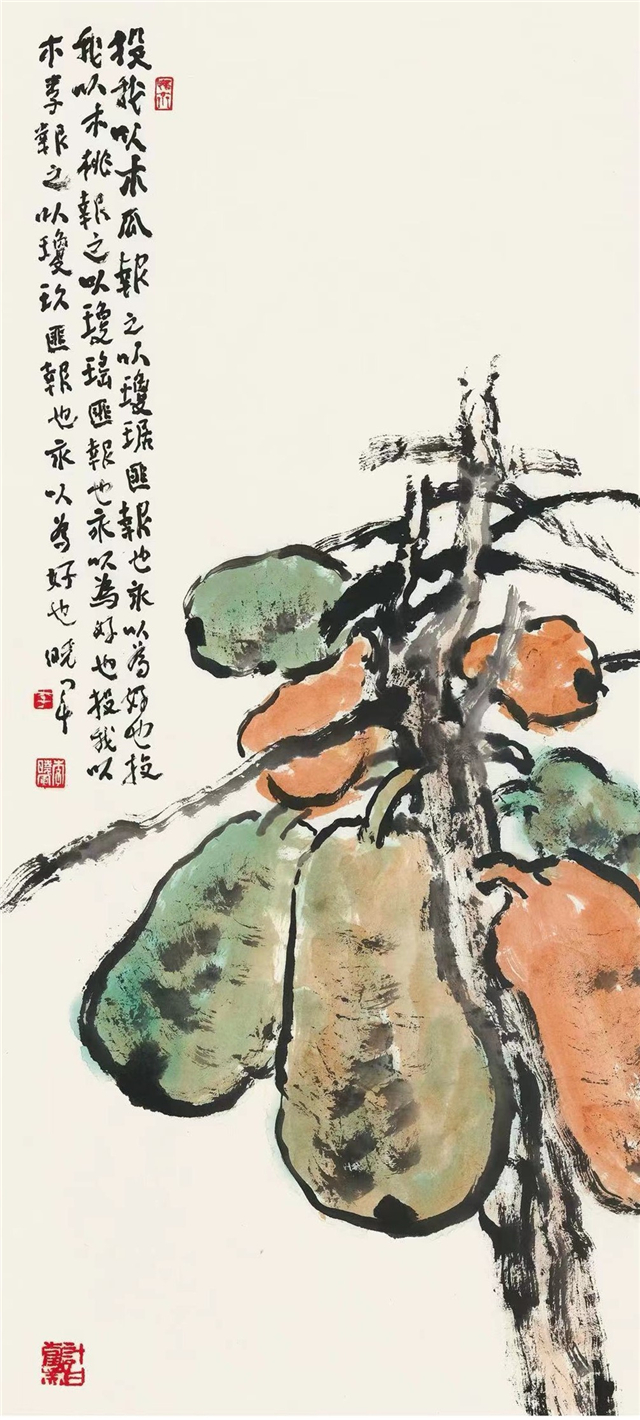 投我以木瓜報之以瓊琚匪報也永以為好也投
我以木桃報之以瓊瑤匪報也永以為好也投我以
木李報之以瓊玖匪報也永以為好也晓军
計白當黑